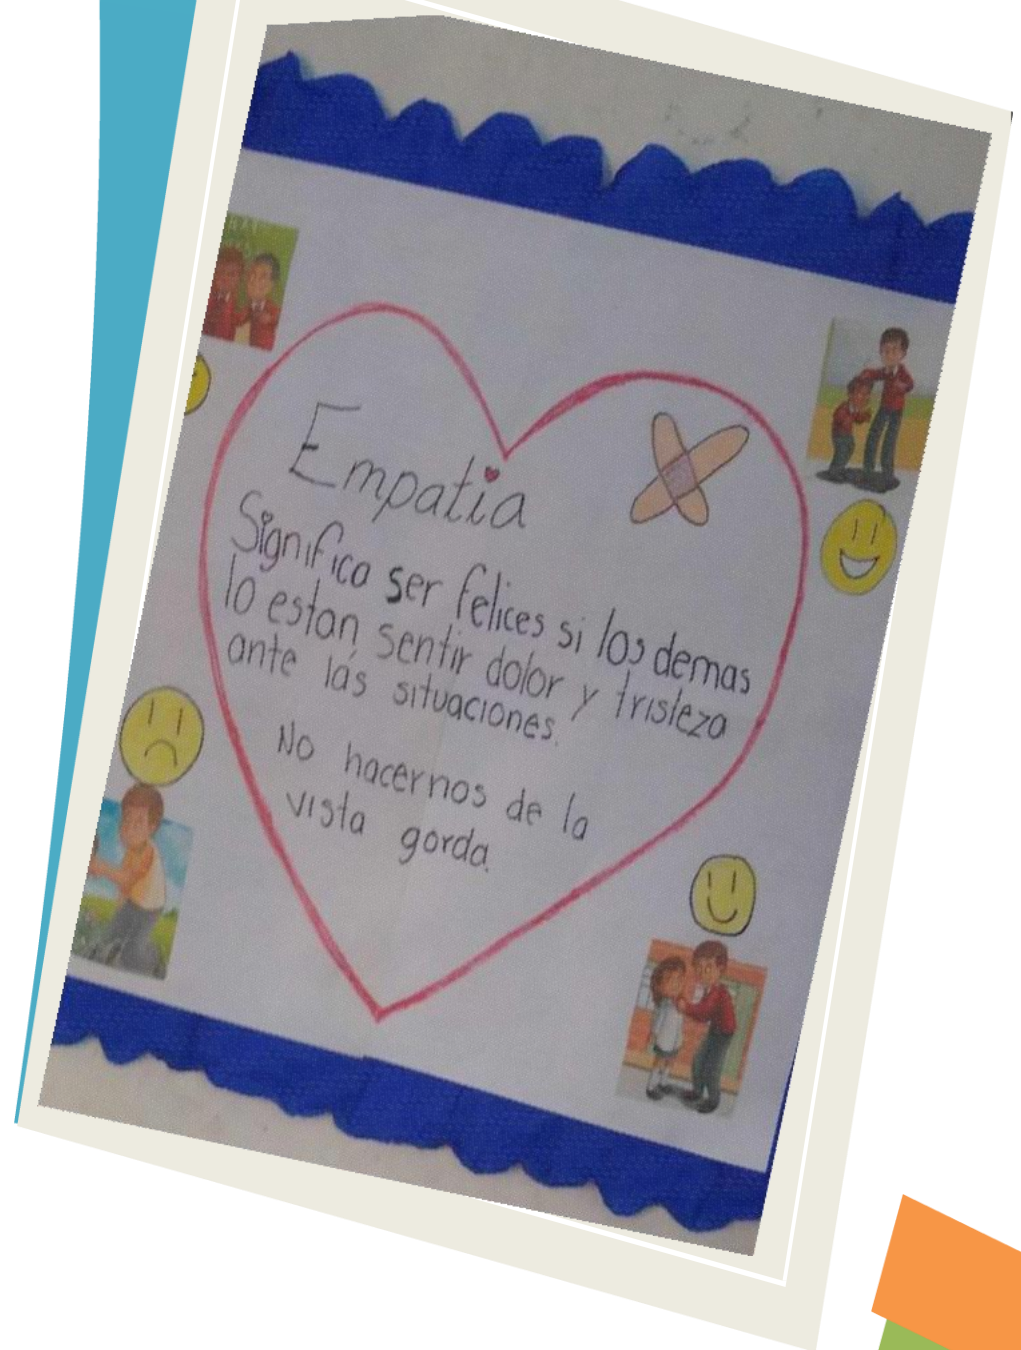 Empatia
Significa ser felices si los demas
lo estan sentir dolor y tristeza
ante las situaciones.
No hacernos de la
vista gorda.